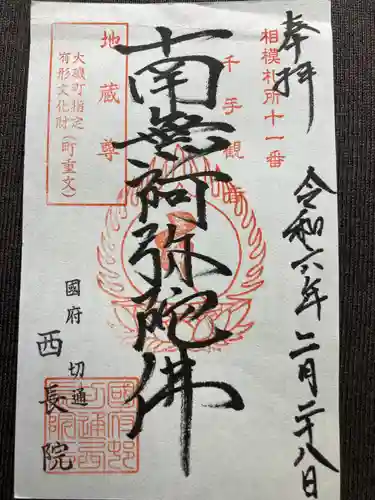 奉拝
相模札所十一番
千手観音
令和六年二月二十八日
南無阿弥陀佛
地蔵尊
大磯町指定
有形文化財(町重文)
國府 切通
西長院